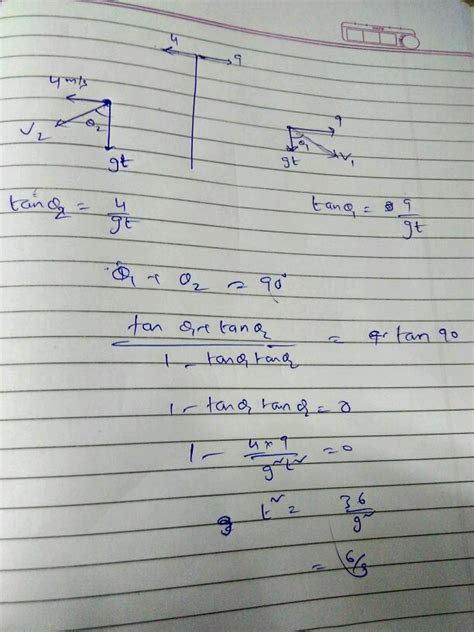 4 9
4 m/s
θ₂
V₂
gt
9
θ₁
gt V₁
tanθ₂ = 4/gt
tanθ₁ = 9/gt
θ₁ + θ₂ = 90°
tan θ₁ + tan θ₂ / 1 - tanθ₁ tanθ₂ = tan 90
1 - tanθ₁ tanθ₂ = 0
1 - 4×9/g²t² = 0
t² = 36/g²
= 6/g